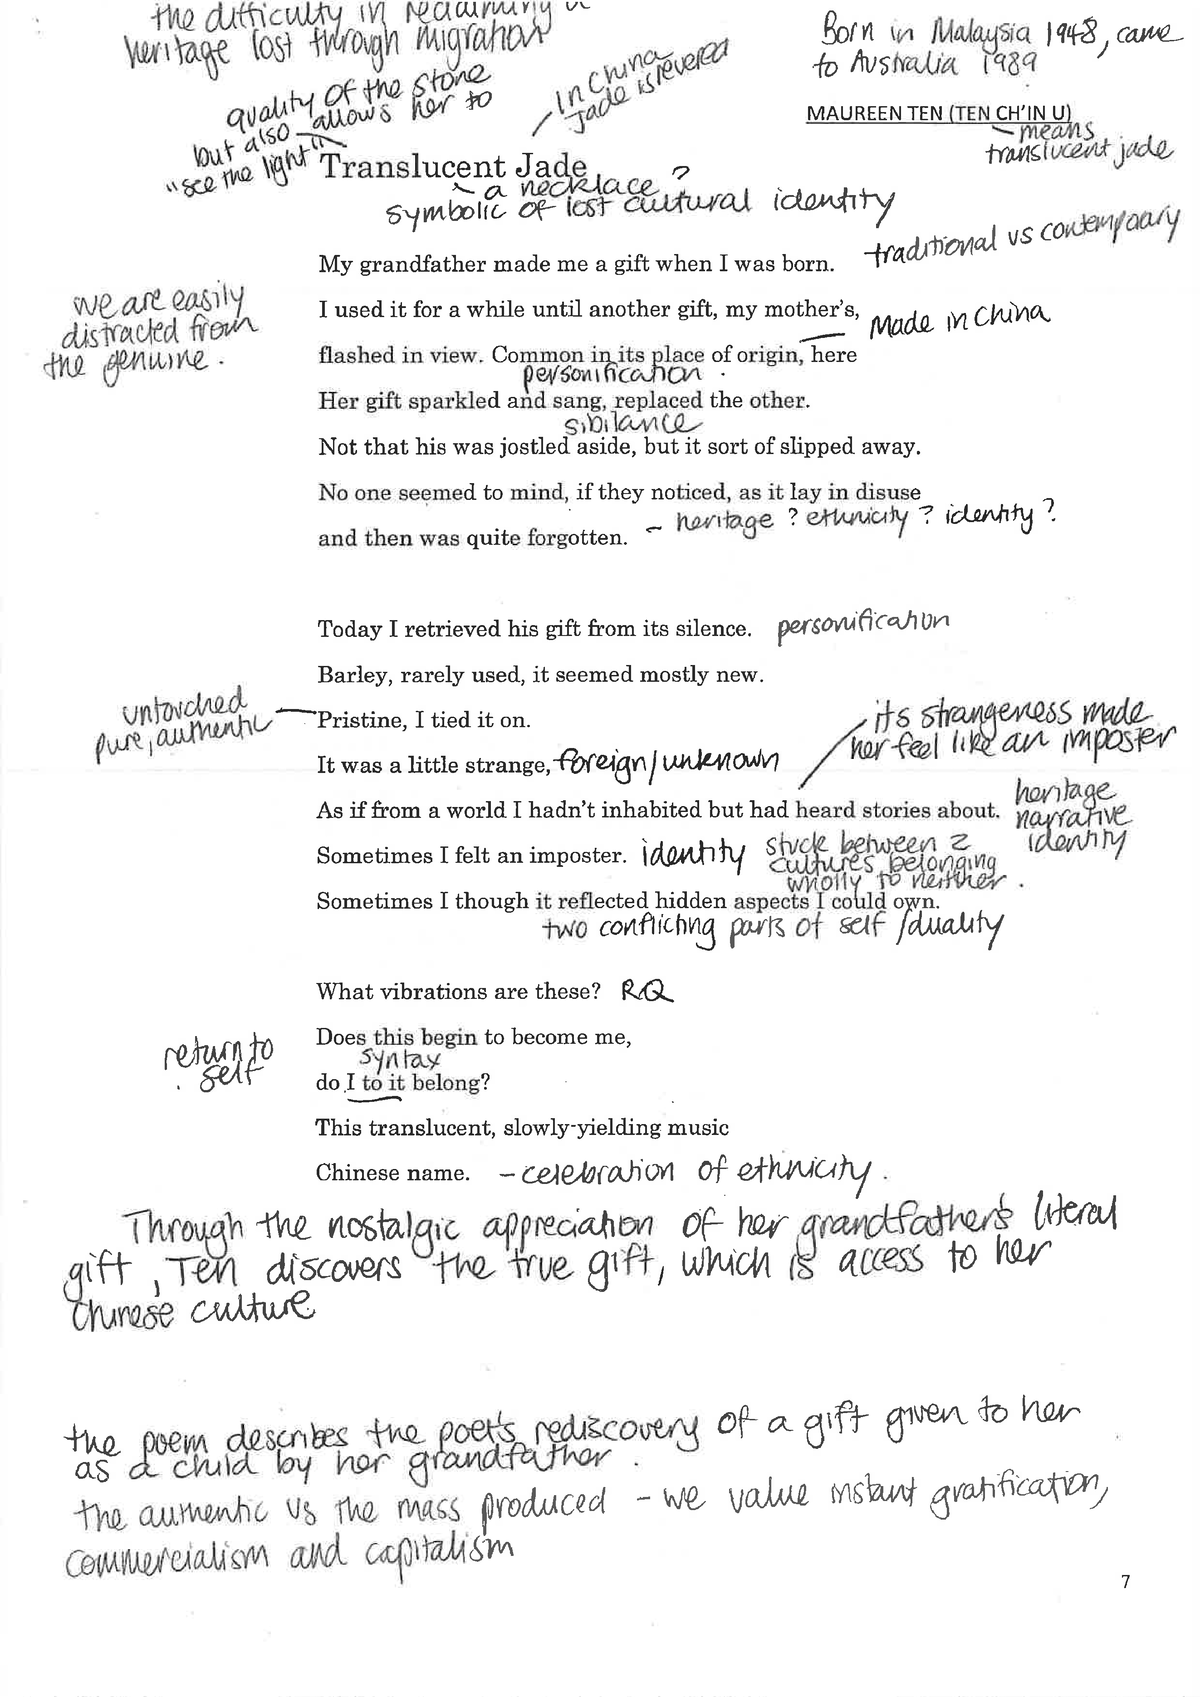 the difficulty in reclaiming
heritage lost through migration
Born in Malaysia 1948, came
to Australia 1989
quality of the stone
but also allows her to
"see the light"
in China
Jade is revered
MAUREEN TEN (TEN CH'IN U)
means
translucent jade
Translucent Jade
a necklace ?
symbolic of lost cultural identity
traditional vs contempoary
My grandfather made me a gift when I was born.
we are easily
distracted from
the genuine.
I used it for a while until another gift, my mother's,
Made in China
flashed in view. Common in its place of origin, here
personification
Her gift sparkled and sang, replaced the other.
sibilance
Not that his was jostled aside, but it sort of slipped away.
No one seemed to mind, if they noticed, as it lay in disuse
and then was quite forgotten.
– heritage ? ethnicity ? identity ?
Today I retrieved his gift from its silence.
personification
Barley, rarely used, it seemed mostly new.
untouched
pure, authentic
Pristine, I tied it on.
its strangeness made
her feel like an imposter
It was a little strange,
foreign/unknown
As if from a world I hadn't inhabited but had heard stories about.
heritage
narrative
identity
Sometimes I felt an imposter.
identity
stuck between 2
cultures, belonging
wholly to neither.
Sometimes I though it reflected hidden aspects I could own.
two conflicting parts of self /duality
What vibrations are these?
RQ
Does this begin to become me,
return to
self
syntax
do I to it belong?
This translucent, slowly-yielding music
Chinese name.
– celebration of ethnicity.
Through the nostalgic appreciation of her grandfather's literal
gift, Ten discovers the true gift, which is access to her
Chinese culture
the poem describes the poet's rediscovery of a gift given to her
as a child by her grandfather.
the authentic vs the mass produced – we value instant gratification,
commercialism and capitalism
7